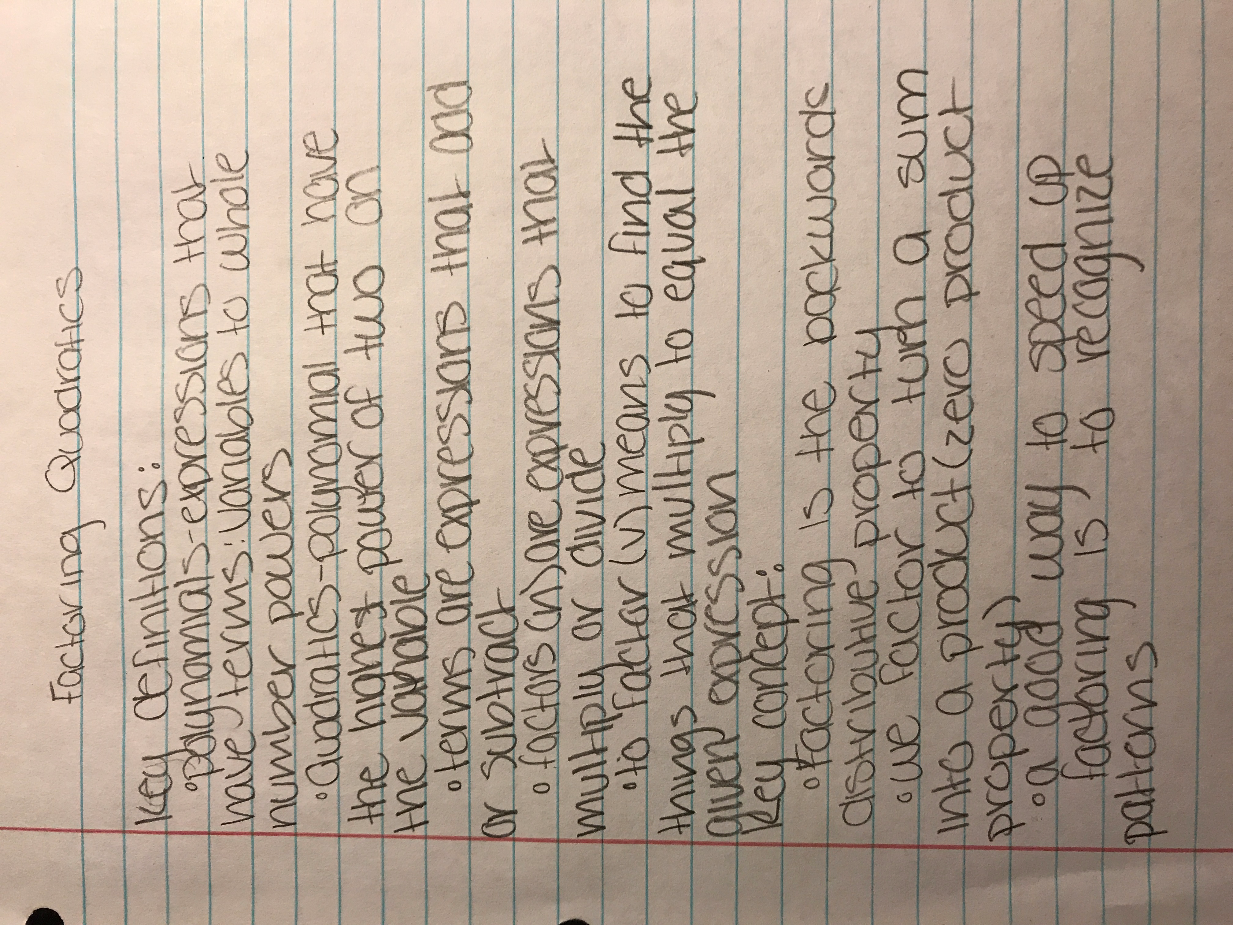 Factoring Quadratics
Key definitions:
• polynomials-expressions that
have terms: variables to whole
number powers
• Quadratics-polynomial that have
the highest power of two on
the variable
• terms are expressions that add
or subtract
• factors (n) are expressions that
multiply or divide
• to factor (v) means to find the
things that multiply to equal the
given expression
Key concept:
• Factoring is the backwards
distributive property
• we factor to turn a sum
into a product (zero product
property)
• a good way to speed up
factoring is to recognize
patterns